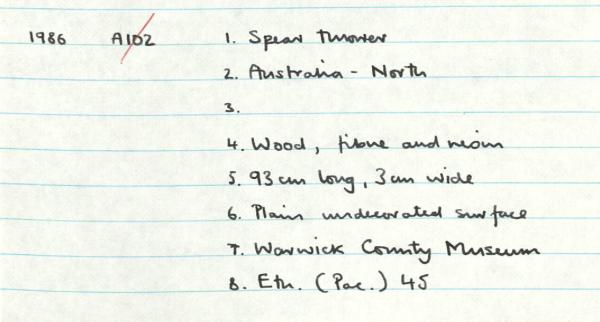 1986 A102 1. Spear thrower
2. Australia - North
3.
4. Wood, fibre and resin
5. 93 cm long, 3 cm wide
6. Plain undecorated surface
7. Warwick County Museum
8. Eth. (Pac.) 45